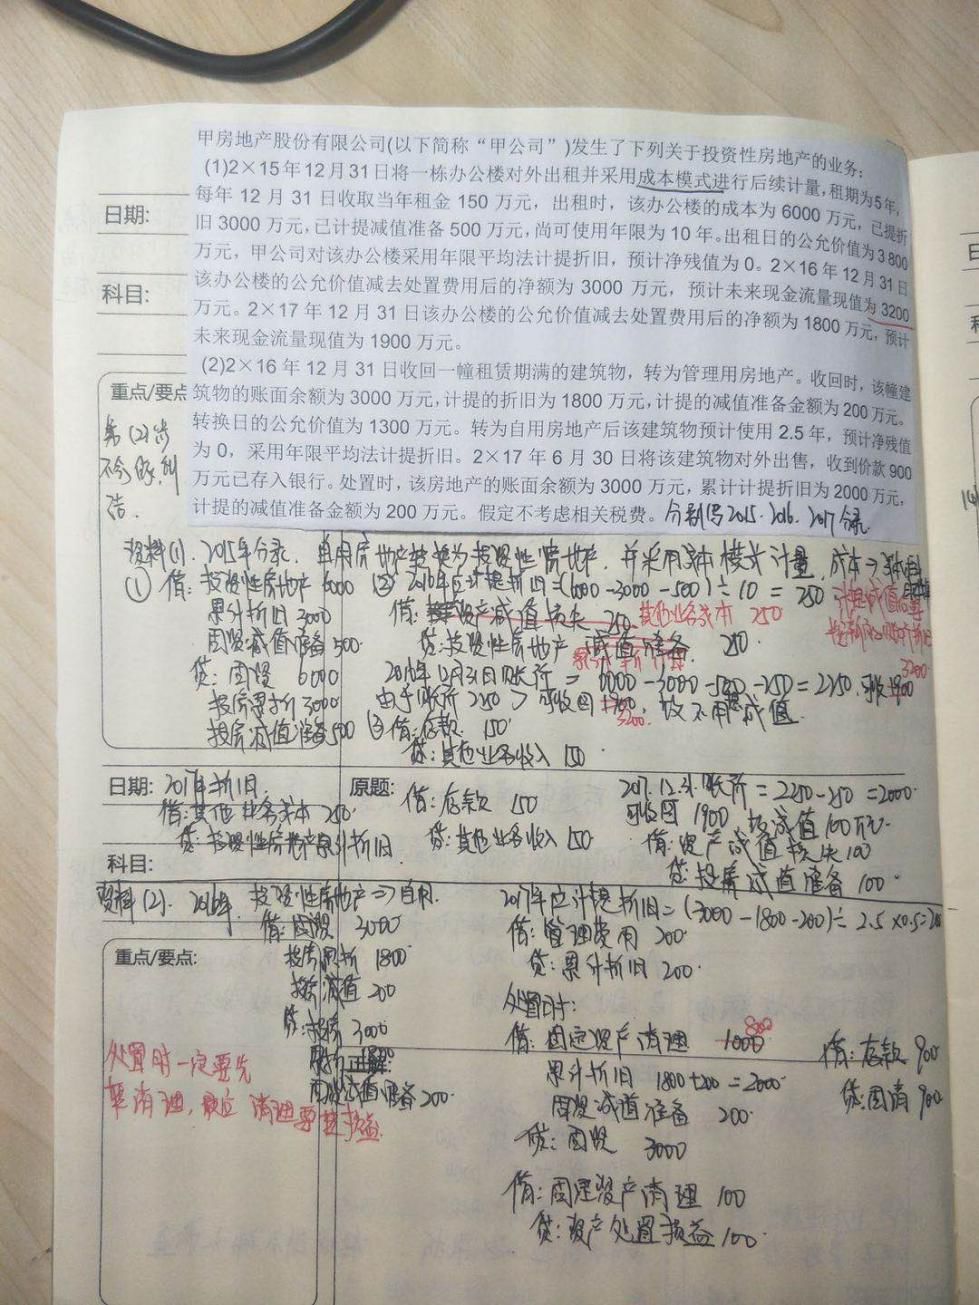 甲房地产股份有限公司(以下简称“甲公司”)发生了下列关于投资性房地产的业务:
(1)2×15年12月31日将一栋办公楼对外出租并采用成本模式进行后续计量,租期为5年,
每年12月31日收取当年租金150万元,出租时,该办公楼的成本为6000万元,已提折
旧3000万元,已计提减值准备500万元,尚可使用年限为10年。出租日的公允价值为3800
万元,甲公司对该办公楼采用年限平均法计提折旧,预计净残值为0。2×16年12月31日
该办公楼的公允价值减去处置费用后的净额为3000万元,预计未来现金流量现值为3200
万元。2×17年12月31日该办公楼的公允价值减去处置费用后的净额为1800万元,预计
未来现金流量现值为1900万元。
(2)2×16年12月31日收回一幢租赁期满的建筑物,转为管理用房地产。收回时,该幢建
筑物的账面余额为3000万元,计提的折旧为1800万元,计提的减值准备金额为200万元。
转换日的公允价值为1300万元。转为自用房地产后该建筑物预计使用2.5年,预计净残值
为0,采用年限平均法计提折旧。2×17年6月30日将该建筑物对外出售,收到价款900
万元已存入银行。处置时,该房地产的账面余额为3000万元,累计计提折旧为2000万元,
计提的减值准备金额为200万元。假定不考虑相关税费。分别写2015.2016.2017分录
日期:
科目:
重点/要点
第(2)步
资料(1).2015年分录.自用房地产转换为投资性房地产,并采用成本模式计量,成本⇒
① 借:投资性房地产 6000
累计折旧 3000
固资减值准备 500
贷:固资 6000
投房累折 3000
投房减值准备 500
② 2016年应计提折旧=(6000-3000-500)÷10=250
借:资产减值损失 250 其他业务成本 250
贷:投资性房地产减值准备 250
累计折旧
2016年12月31日账价=6000-3000-500-250=2250.
3200
由于账价2250>可收回1900,故不用减值.
3200
③借:存款 150
贷:其他业务收入 150
日期: 2017年折旧
借:其他业务成本 250
贷:投资性房地产累计折旧
科目:
原题: 借:存款 150
贷:其他业务收入 150
2017.12.31.账价=2250-250=2000.
可收回1900 故减值100万元.
借:资产减值损失 100
贷:投房减值准备 100
资料(2).2016年.投资性房地产⇒自用
借:固资 3000
投房累折 1800
投房减值 200
贷:投房 3000
累折
正解:
固资减值准备 200
重点/要点:
处置时一定要先
2017年应计提折旧=(3000-1800-200)÷2.5×0.5=200
借:管理费用 200
贷:累计折旧 200.
处置时:
借:固定资产清理 1000 800
累计折旧 1800+200=2000
固资减值准备 200
贷:固资 3000
借:存款 900
贷:固清 900
借:固定资产清理 100
贷:资产处置损益 100.